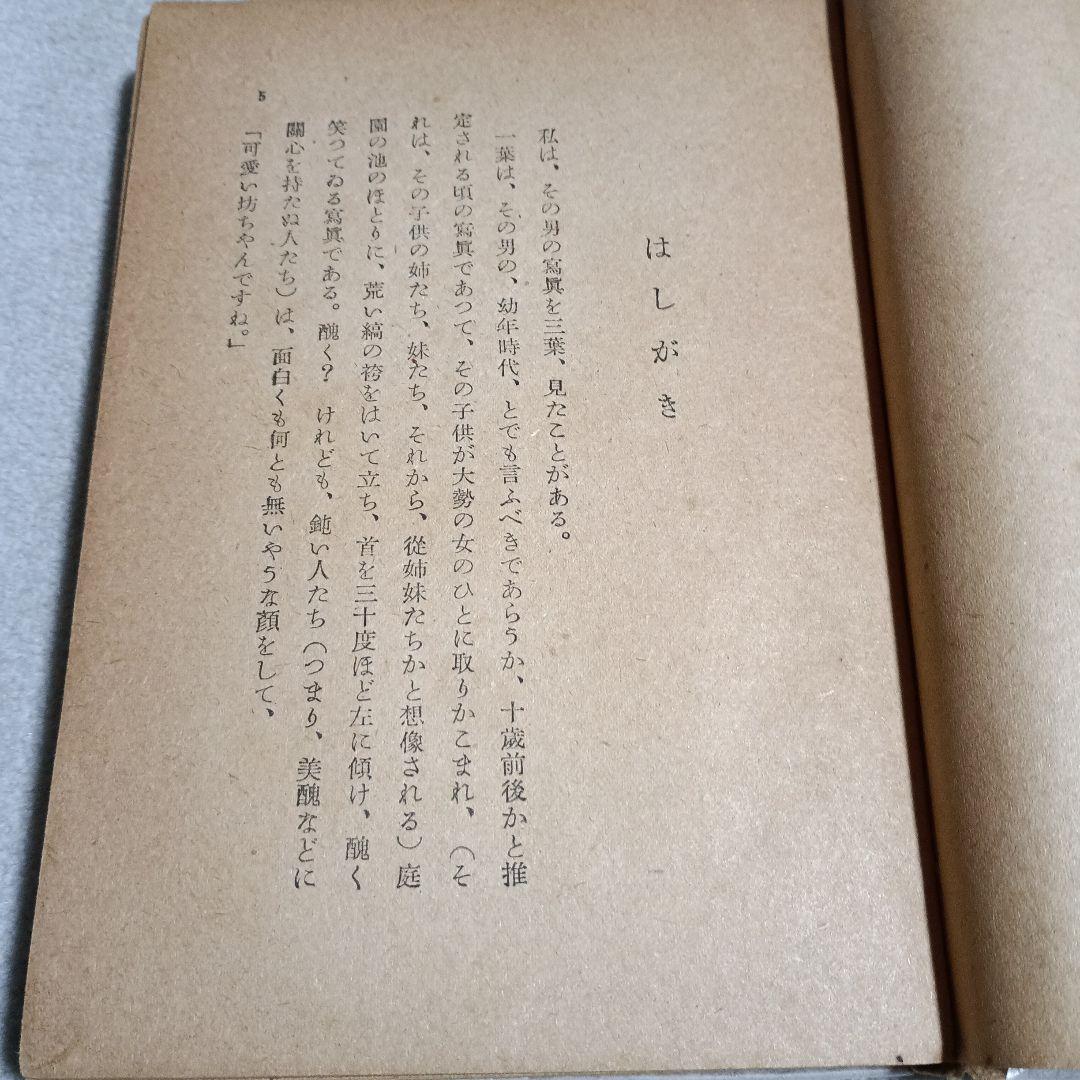 はしがき
私は、その男の寫眞を三葉、見たことがある。
一葉は、その男の、幼年時代、とでも言ふべきであらうか、十歳前後かと推
定される頃の寫眞であつて、その子供が大勢の女のひとに取りかこまれ、（そ
れは、その子供の姉たち、妹たち、それから、從姉妹たちかと想像される）庭
園の池のほとりに、荒い縞の袴をはいて立ち、首を三十度ほど左に傾け、醜く
笑つてゐる寫眞である。醜く？　けれども、鈍い人たち（つまり、美醜などに
關心を持たぬ人たち）は、面白くも何とも無いやうな顏をして、
「可愛い坊ちやんですね。」
5